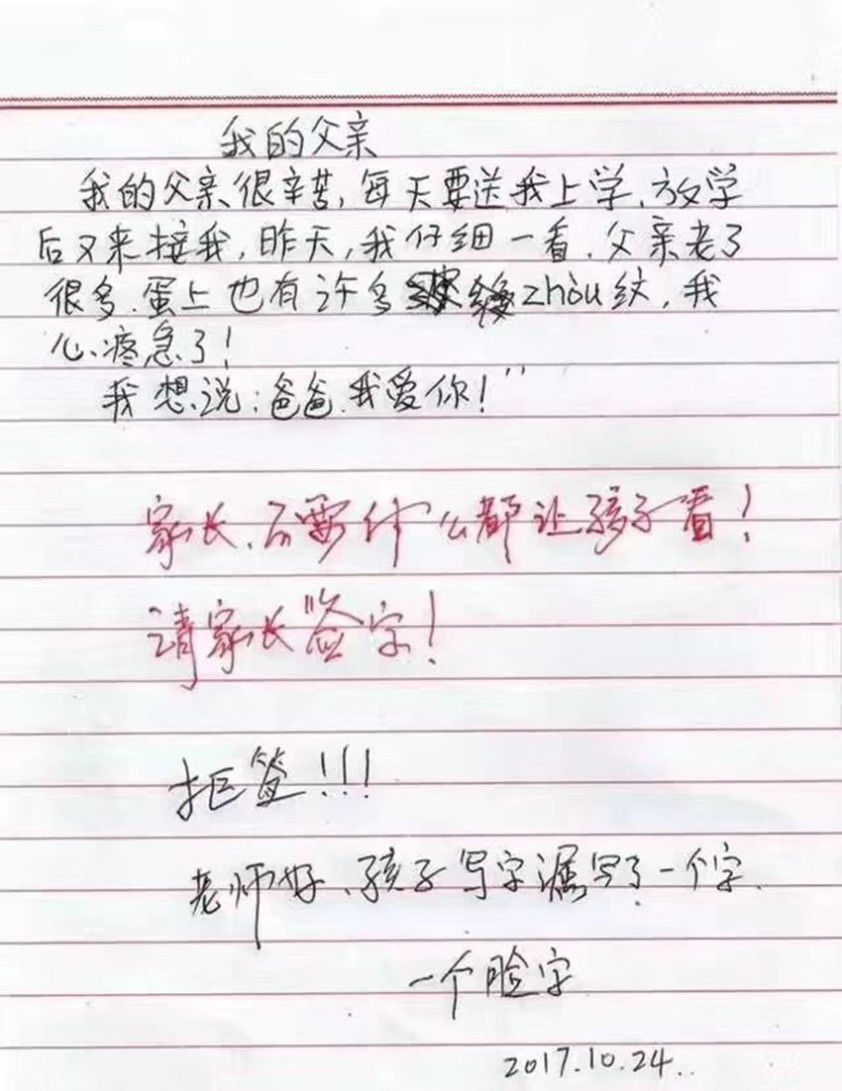 我的父亲
我的父亲很辛苦,每天要送我上学.放学
后又来接我,昨天,我仔细一看.父亲老了
很多.蛋上也有许多zhòu纹,我
心疼急了!
我想说:爸爸.我爱你!”
家长.不要什么都让孩子看!
请家长签字!
拒签!!!
老师好、孩子写字漏写了一个字.
一个脸字
2017.10.24..